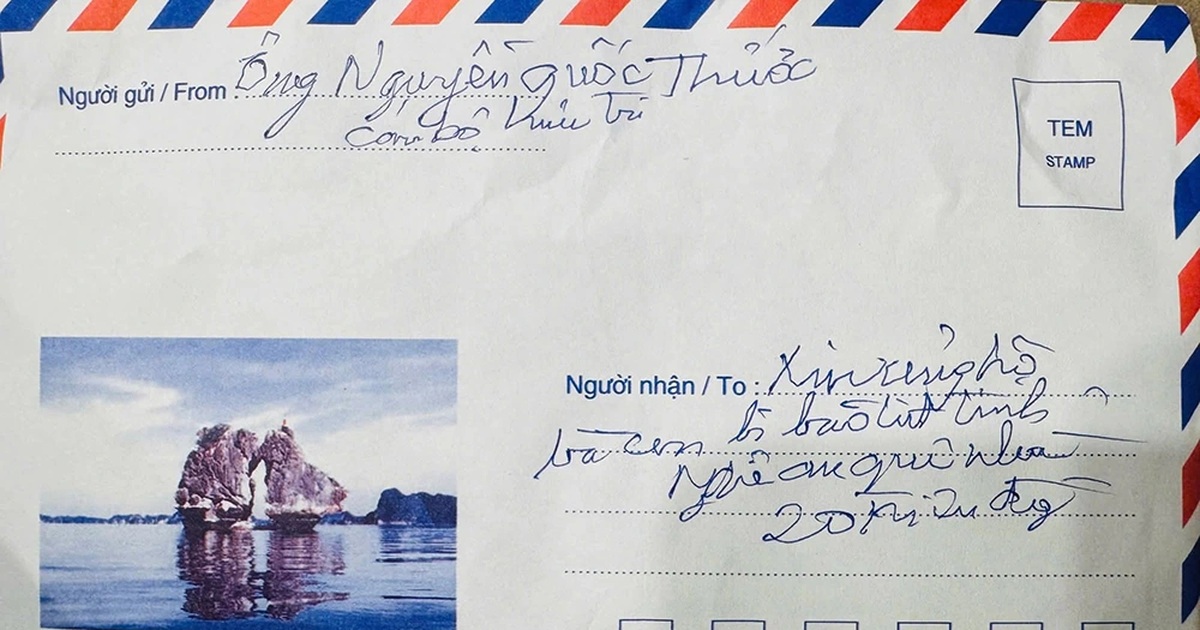 Người gửi / From : Ông Nguyễn Quốc Thước
Cán bộ hưu trí
TEM
STAMP
Người nhận / To : Xin ủng hộ
bà con bị bão lụt tỉnh
Nghệ an quê nhà
20 triệu đồng